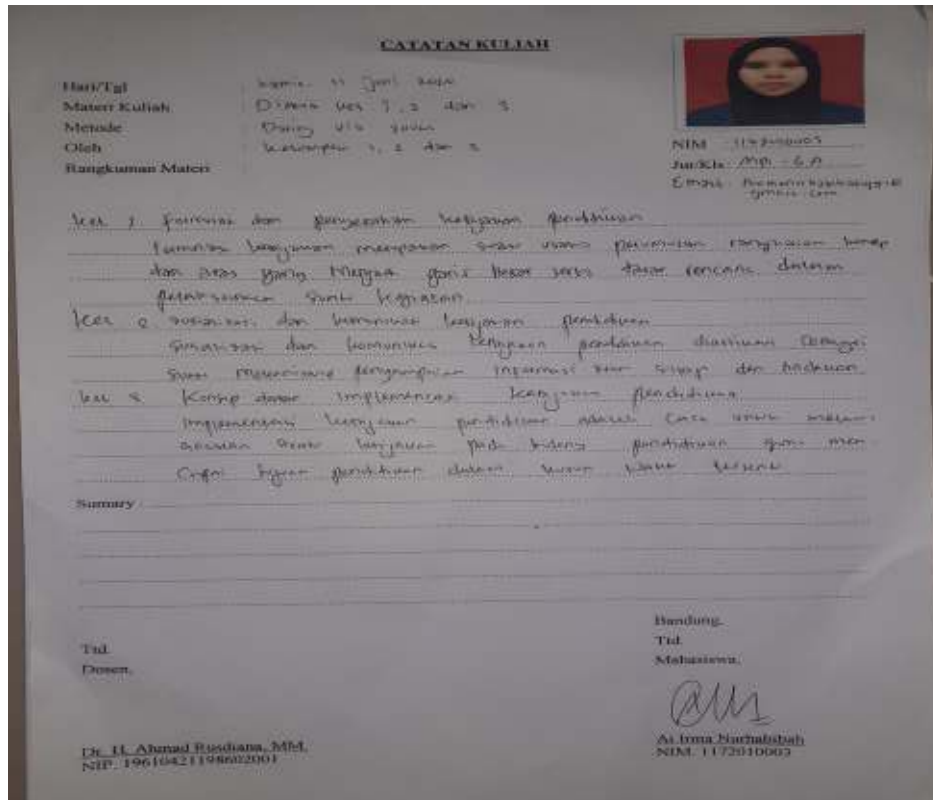 CATATAN KULIAH
Hari/Tgl : Kamis, 11 Juni
Materi Kuliah : Diskusi kel 1, 2 dan 3
Metode : Daring via
Oleh : Kelompok 1, 2 dan 3
Rangkuman Materi :
NIM
Jur/Kls : MPI - 6 A
Email :
gmail.com
kel 1. Formulasi dan kebijakan pendidikan
kebijakan merupakan suatu perumusan rangkaian konsep
dan asas yang menjadi garis besar serta dasar rencana dalam
pelaksanaan suatu kegiatan
kel 2 sosialisasi dan komunikasi kebijakan pendidikan
sosialisasi dan komunikasi kebijakan pendidikan diartikan sebagai
suatu penyampaian informasi sikap dan
kel 3 Konsep dasar implementasi kebijakan pendidikan
implementasi kebijakan pendidikan adalah cara untuk
suatu kebijakan pada bidang pendidikan guna men
capai tujuan pendidikan dalam kurun waktu tertentu
Sumary :
Bandung,
Ttd.
Ttd.
Dosen,
Mahasiswa,
Dr. H. Ahmad Rusdiana, MM.
NIP. 19610421198602001
Ai Irma Nurhabibah
NIM. 1172010003